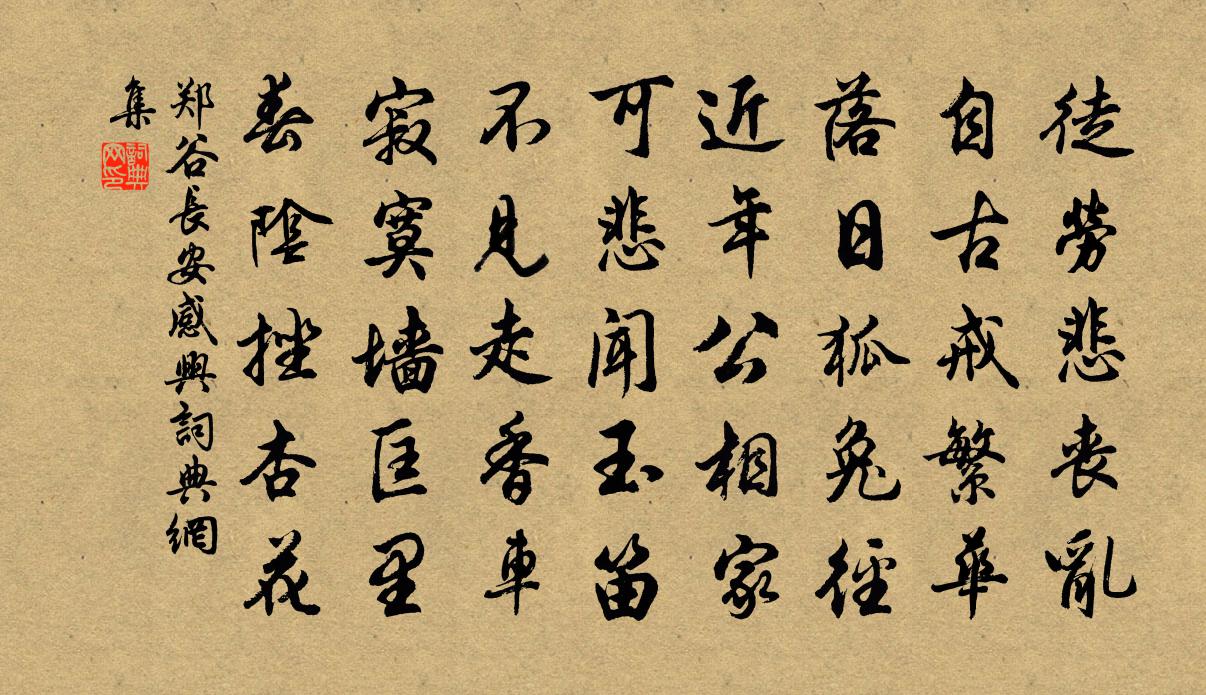 徒劳悲丧亂
自古戒繁華
落日狐兔徑
近年公相家
可悲闻玉笛
不見走香車
寂寞墙匡里
春陰挫杏花
郑谷長安感興詞典網
集
詞典網印